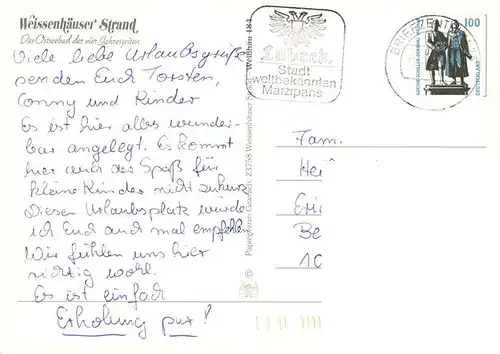 Weissenhäuser Strand
Das Ostseebad der vier Jahreszeiten
Viele liebe Urlaubsgrüße
senden Euch Torsten,
Conny und Kinder
Es ist hier alles wunder-
bar angelegt. Es kommt
hier auch der Spaß für
kleine Kinder nicht zu kurz
Diesen Urlaubsplatz würde
ich Euch auch mal empfehlen
Wir fühlen uns hier
richtig wohl.
Es ist einfach
Erholung pur!
Lübeck
Stadt
weltbekannten
Marzipans
BRIEFZENTRUM
100
DEUTSCHLAND
GOETHE-SCHILLER-DENKMAL
23758 Weissenhäuser Strand
Fam.
Hei
Eri
Be
10